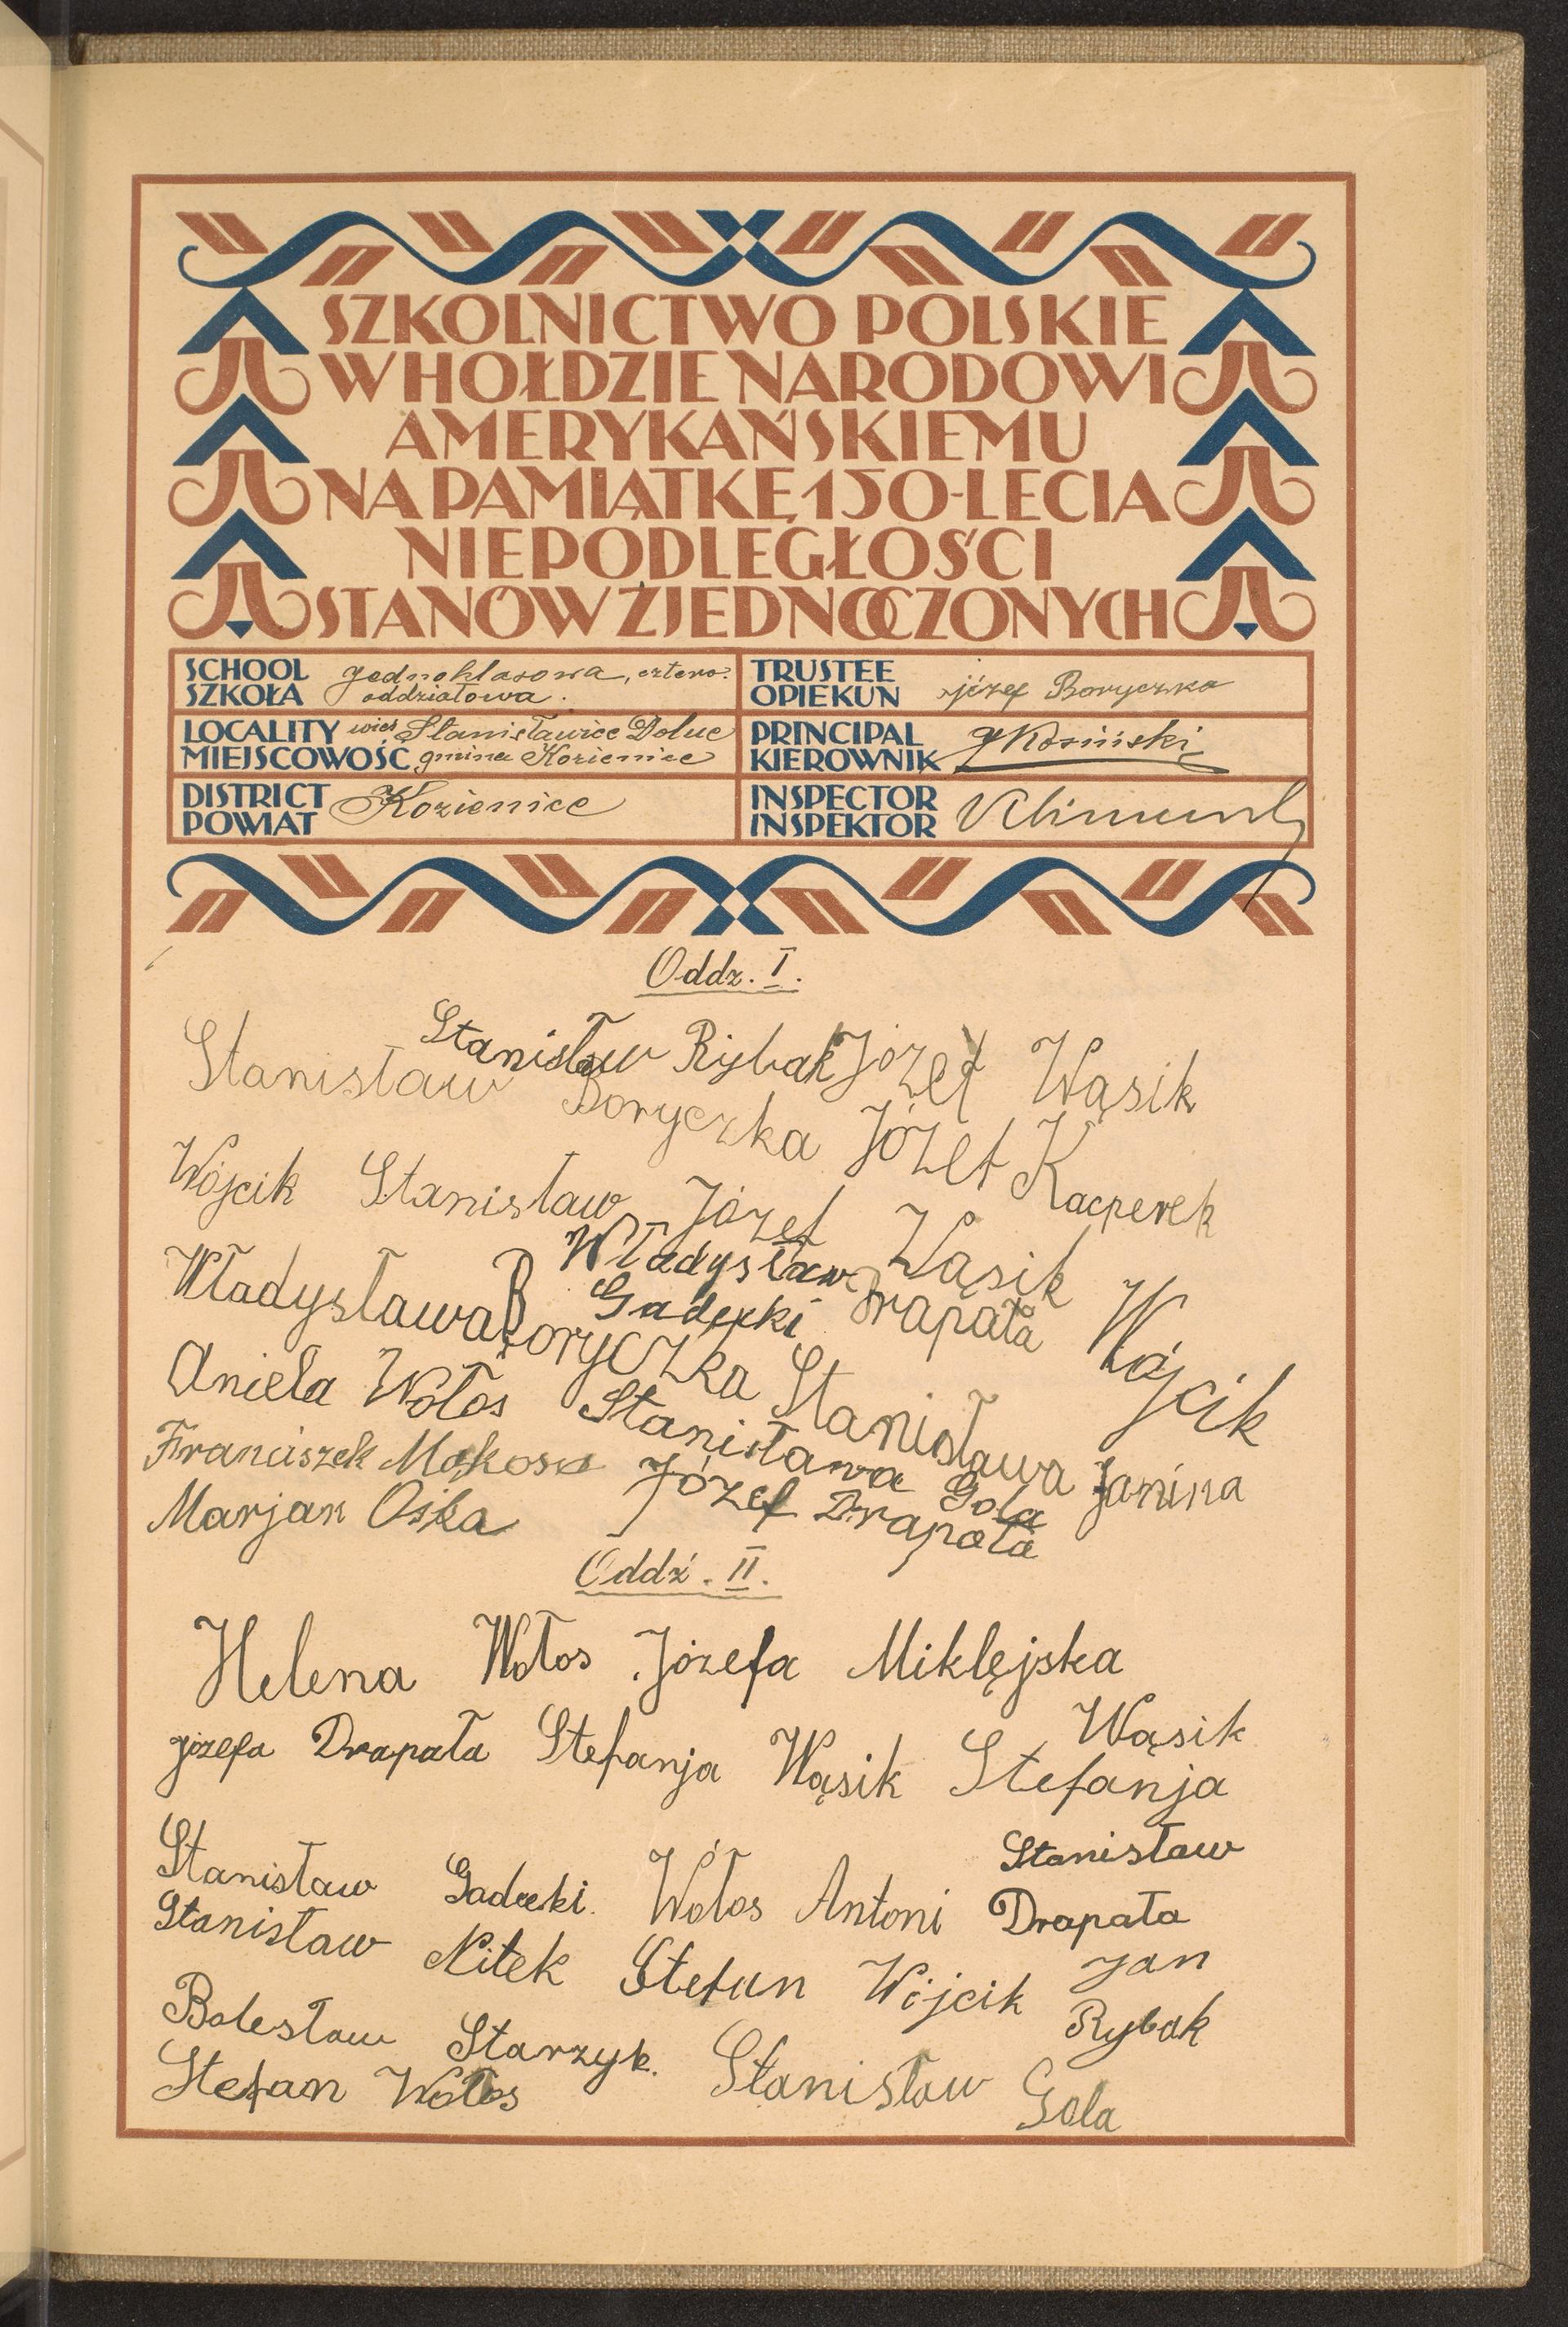 SZKOLNICTWO POLSKIE
W HOŁDZIE NARODOWI
AMERYKAŃSKIEMU
NA PAMIĄTKĘ 150-LECIA
NIEPODLEGŁOŚCI
STANÓW ZJEDNOCZONYCH
SCHOOL
SZKOŁA
Jednoklasowa, cztero-
oddziałowa.
TRUSTEE
OPIEKUN
józef Boryczka
LOCALITY
MIEJSCOWOŚĆ
wieś Stanisławice Dolne
gmina Kozienice
PRINCIPAL
KIEROWNIK
Kosiński
DISTRICT
POWIAT
Kozienice
INSPECTOR
INSPEKTOR
Oddz. I.
Stanisław Rybak Józef Wąsik
Stanisław Boryczka Józef Kacperek
Wójcik Stanisław Józef Wąsik
Władysław Drapała
Gadecki
Władysława Boryczka Stanisława Janina Wójcik
Aniela Wołos Stanisława Gola
Franciszek Makosa Józef Drapała
Marjan Ośka
Oddź. II.
Helena Wołos Józefa Miklęjska
józefa Drapała Stefanja Wąsik Stefanja Wąsik
Stanisław Gadecki. Wółos Antoni Stanisław Drapała
Stanisław Nitek Stefan Wójcik Jan Rybak
Bolesław Starzyk. Stanisław Gola
Stefan Wołos